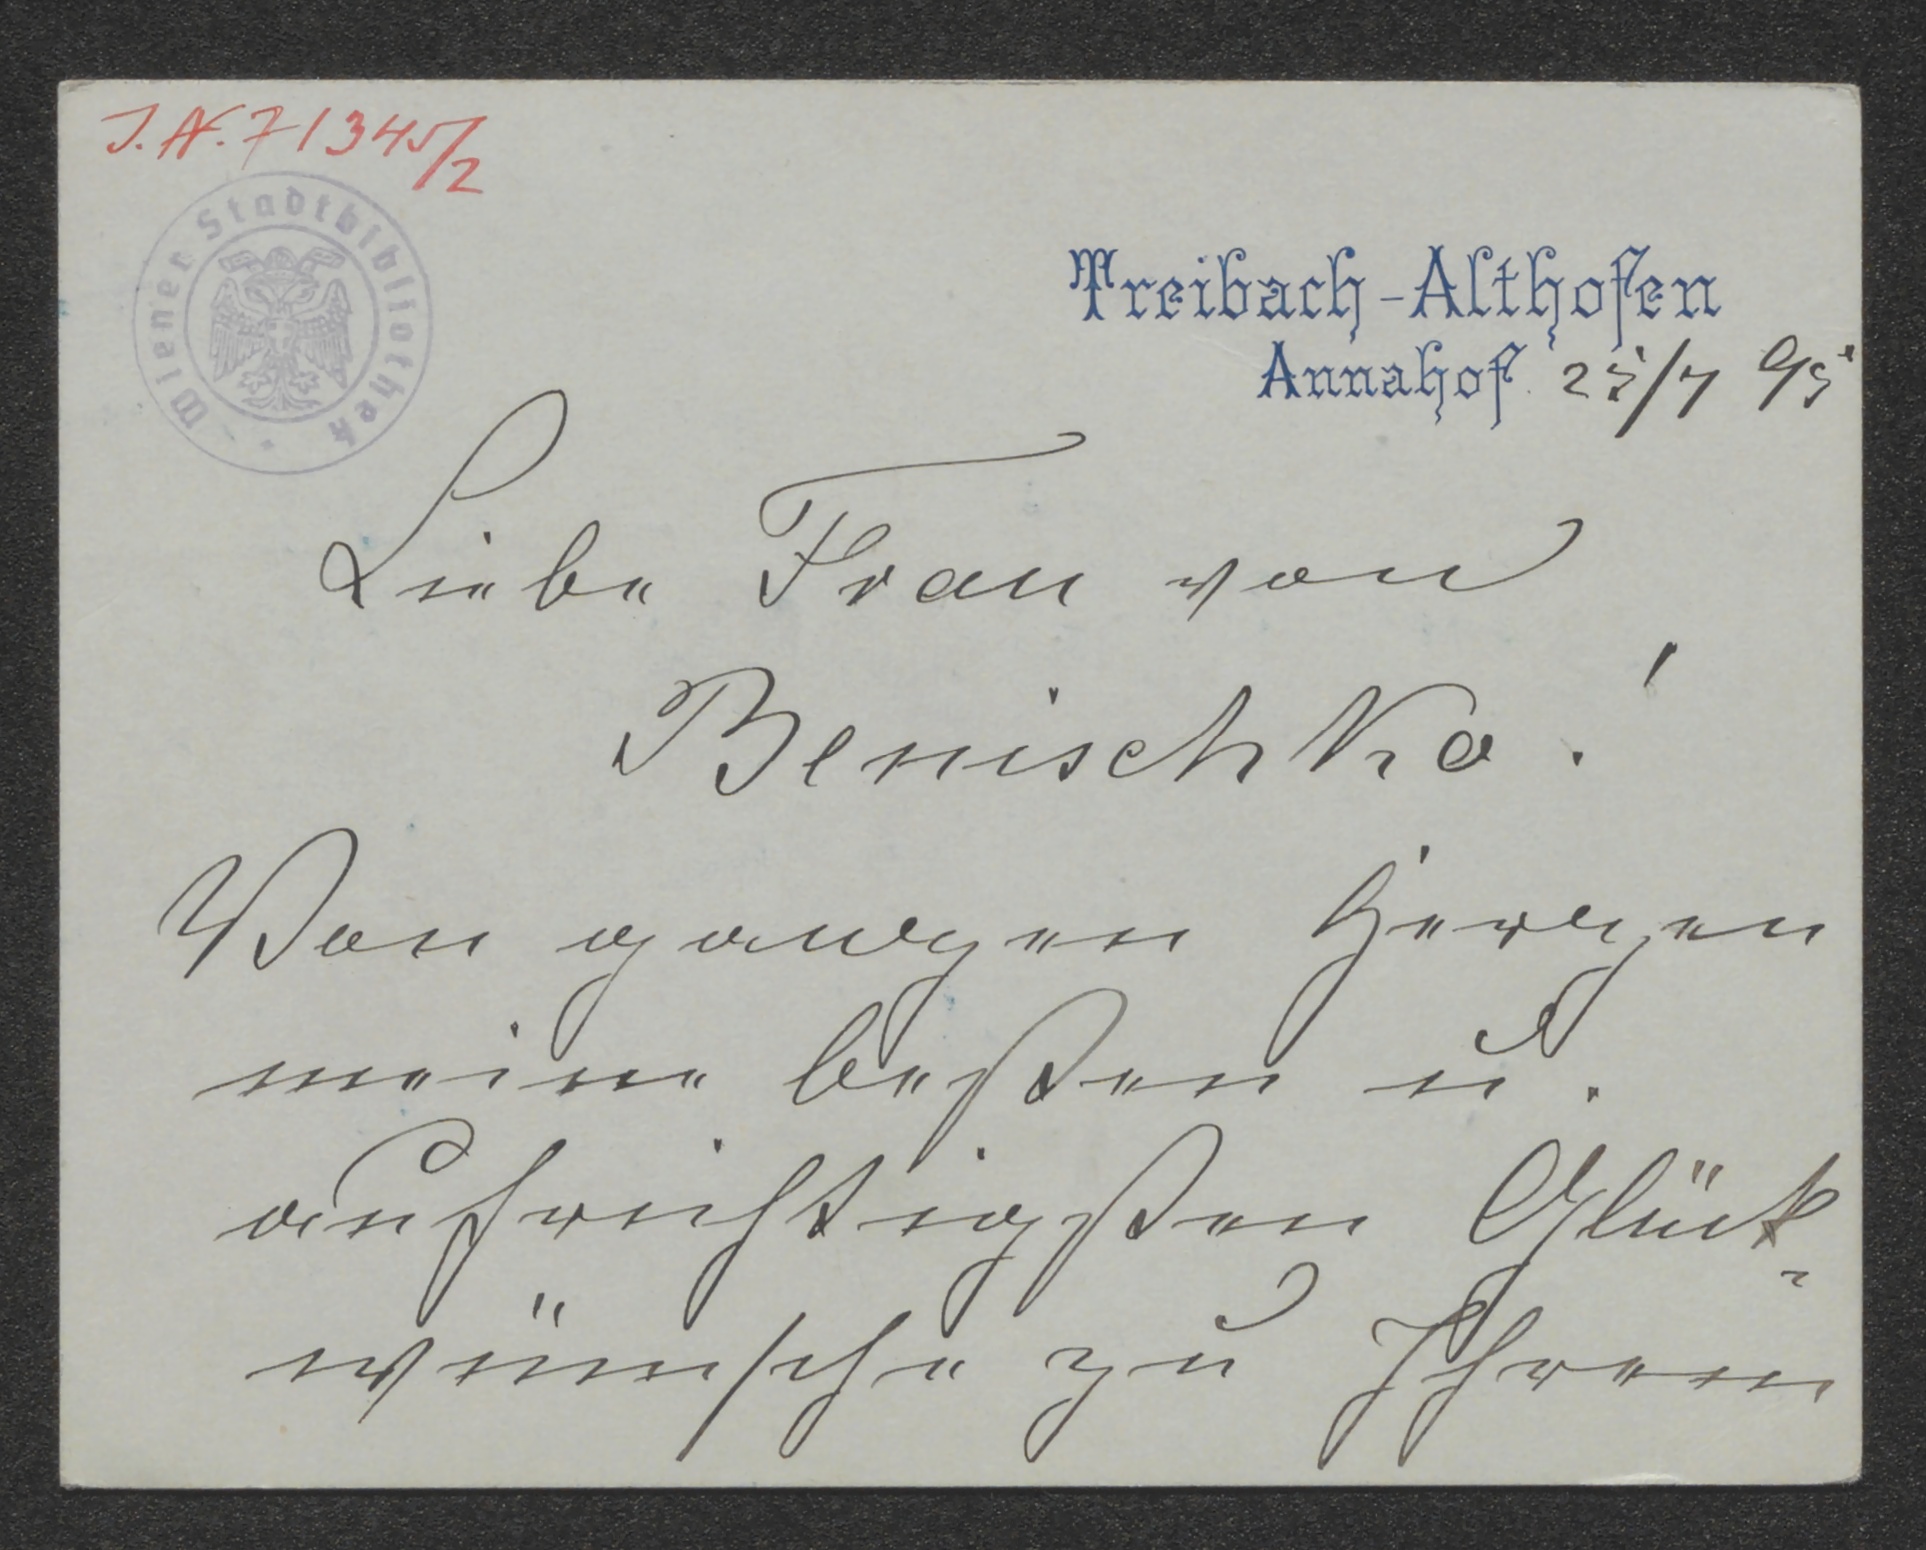 J.N. 71345/2
Wiener Stadtbibliothek
Treibach-Althofen
Annahof 25/7 95
Liebe Frau von
Benischko!
Von ganzen Herzen
meine besten u.
aufrichtigsten Glück-
wünsche zu Ihrem